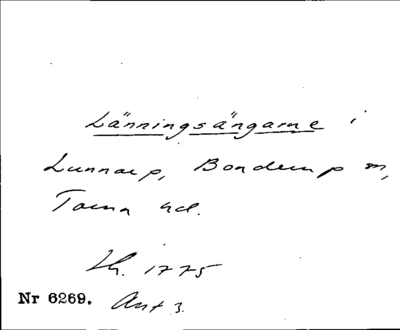 Länningsängarne i
Lunnarp, Bonderup m,
Torna hd.
Lh. 1775
Nr 6269. Ant 3.